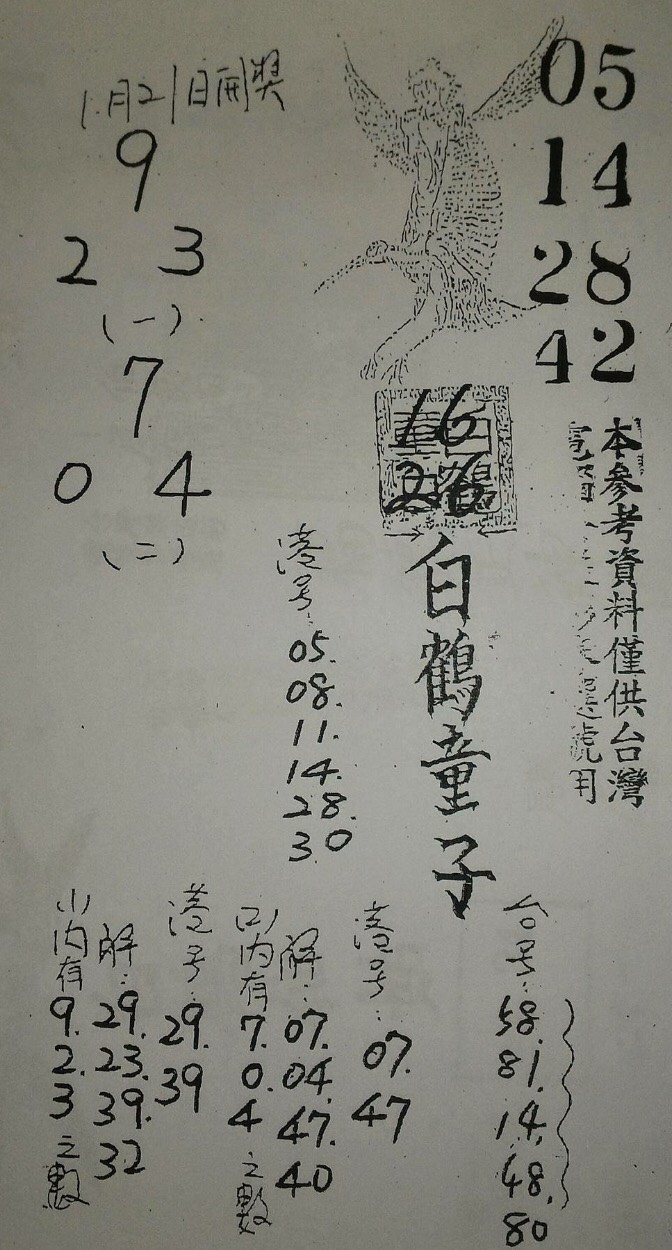 1月21日開獎
9
2 3
(一)
7
0 4
(二)
05
14
28
42
16
26
白鶴童子
本參考資料僅供台灣
號用
港号:
05.
08.
11.
14.
28.
30
台号:
58.
81.
14.
48.
80
港号:
07.
47
解:
07.
04.
47.
40
(2)內有
7.
0.
4
之數
港号:
29.
39
解:
29.
23.
39.
32
(1)內有
9.
2.
3
之數